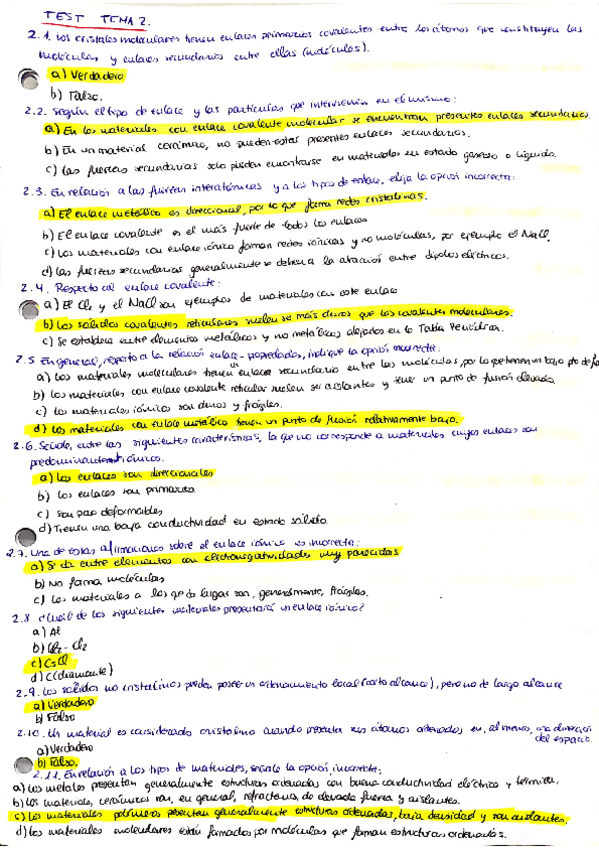 TEST TEMA 2.
2.1. Los cristales moleculares tienen enlaces primarios covalentes entre los átomos que constituyen las
moléculas y enlaces secundarios entre ellas (moléculas).
a) Verdadero
b) Falso.
2.2. Según el tipo de enlace y las partículas que intervienen en el mismo:
a) En los materiales con enlace covalente molecular se encuentran presentes enlaces secundarios.
b) En un material cerámico, no pueden estar presentes enlaces secundarios.
c) Las fuerzas secundarias solo pueden encontrarse en materiales en estado gaseoso o líquido.
2.3. En relación a las fuerzas interatómicas y a los tipos de enlace, elija la opción incorrecta:
a) El enlace metálico es direccional, por lo que forma redes cristalinas.
b) El enlace covalente es el más fuerte de todos los enlaces
c) Los materiales con enlace iónico forman redes iónicas y no moléculas, por ejemplo el NaCl.
d) Las fuerzas secundarias generalmente se deben a la atracción entre dipolos eléctricos.
2.4. Respecto al enlace covalente:
a) El Cl2 y el NaCl son ejemplos de materiales con este enlace
b) Los sólidos covalentes reticulares suelen ser más duros que los covalentes moleculares.
c) Se establece entre elementos metálicos y no metálicos alejados en la Tabla Periódica.
2.5 En general, respecto a la relación enlace-propiedades, indique la opción incorrecta:
a) Los materiales moleculares tienen enlace secundario entre las moléculas, por lo que tienen un bajo pto de fu
b) Los materiales con enlace covalente reticular suelen ser aislantes y tener un punto de fusión elevado
c) Los materiales iónicos son duros y frágiles.
d) Los materiales con enlace metálico tienen un punto de fusión relativamente bajo.
2.6. Señale, entre las siguientes características, la que no corresponde a materiales cuyos enlaces son
predominantemente iónicos.
a) Los enlaces son direccionales
b) Los enlaces son primarios
c) Son poco deformables
d) Tienen una baja conductividad en estado sólido
2.7. Una de estas afirmaciones sobre el enlace iónico es incorrecta:
a) Se da entre elementos con electronegatividades muy parecidas
b) No forma moléculas
c) Los materiales a los que da lugar son, generalmente, frágiles.
2.8 ¿Cuál de los siguientes materiales presentará un enlace iónico?
a) Al
b) Cl2 - Cl2
c) CsCl
d) C (diamante)
2.9. Los sólidos no cristalinos pueden poseer un ordenamiento local (corto alcance), pero no de largo alcance
a) Verdadero
b) Falso
2.10. Un material es considerado cristalino cuando presenta sus átomos ordenados en, al menos, una dirección
del espacio.
a) Verdadero
b) Falso.
2.11. En relación a los tipos de materiales, señale la opción incorrecta:
a) Los metales presentan generalmente estructuras ordenadas con buena conductividad eléctrica y térmica.
b) Los materiales cerámicos son, en general, refractarios, de elevada fuerza y aislantes.
c) Los materiales polímeros presentan generalmente estructuras ordenadas, baja densidad y son aislantes.
d) Los materiales moleculares están formados por moléculas que forman estructuras ordenadas.